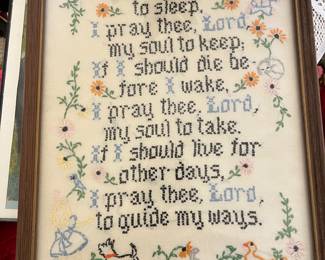 to sleep,
I pray thee, Lord,
my soul to keep;
If I should die be-
fore I wake,
I pray thee, Lord,
my soul to take.
If I should live for
other days,
I pray thee, Lord,
to guide my ways.